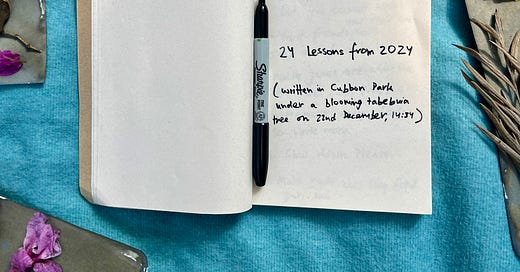 24 Lessons from 2024
(written in Cubbon Park
under a blooming tabebuia
tree on 22nd December, 14:34)
Sharpie